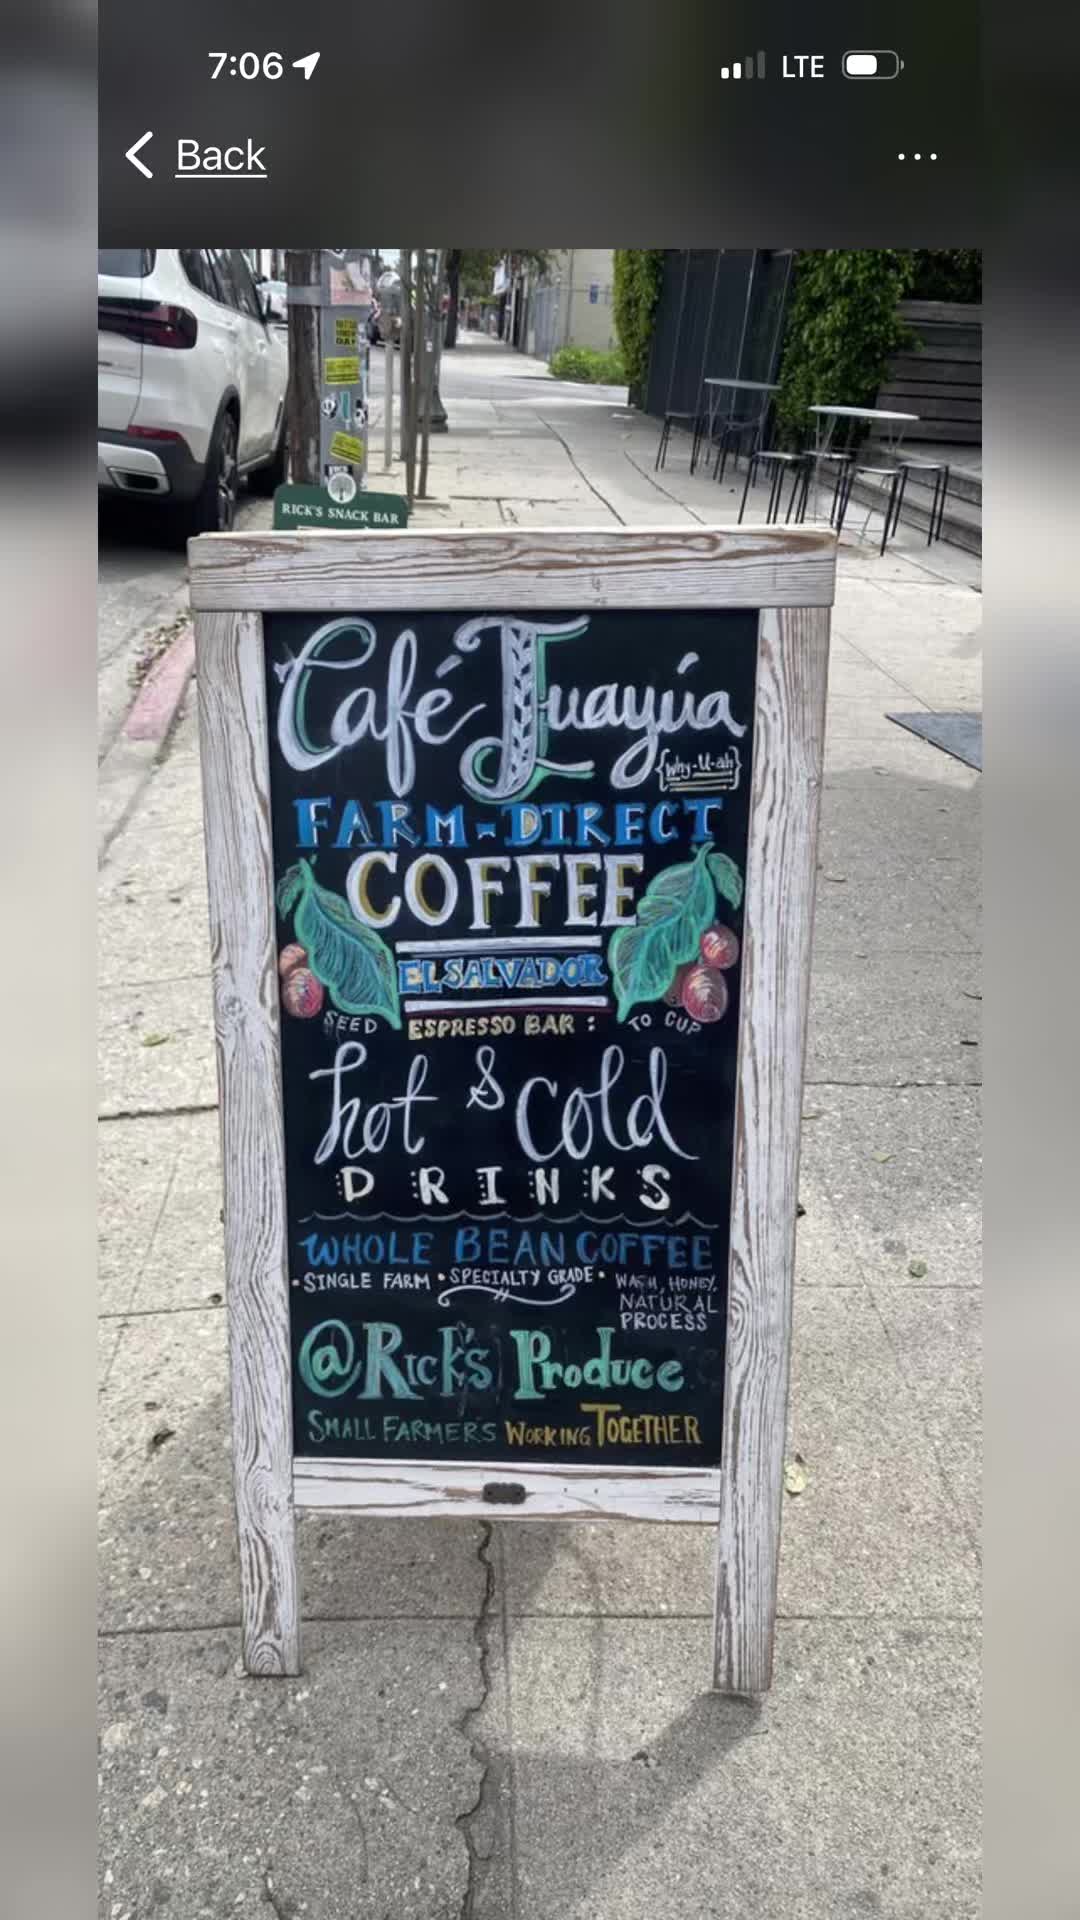 7:06 LTE
Back
RICK'S SNACK BAR
Café Juayúa
{Why-U-ah}
FARM-DIRECT
COFFEE
EL SALVADOR
SEED ESPRESSO BAR: TO CUP
hot & cold
DRINKS
WHOLE BEAN COFFEE
•SINGLE FARM •SPECIALTY GRADE• WASH, HONEY,
NATURAL
PROCESS
@Rick's Produce
SMALL FARMERS WORKING TOGETHER